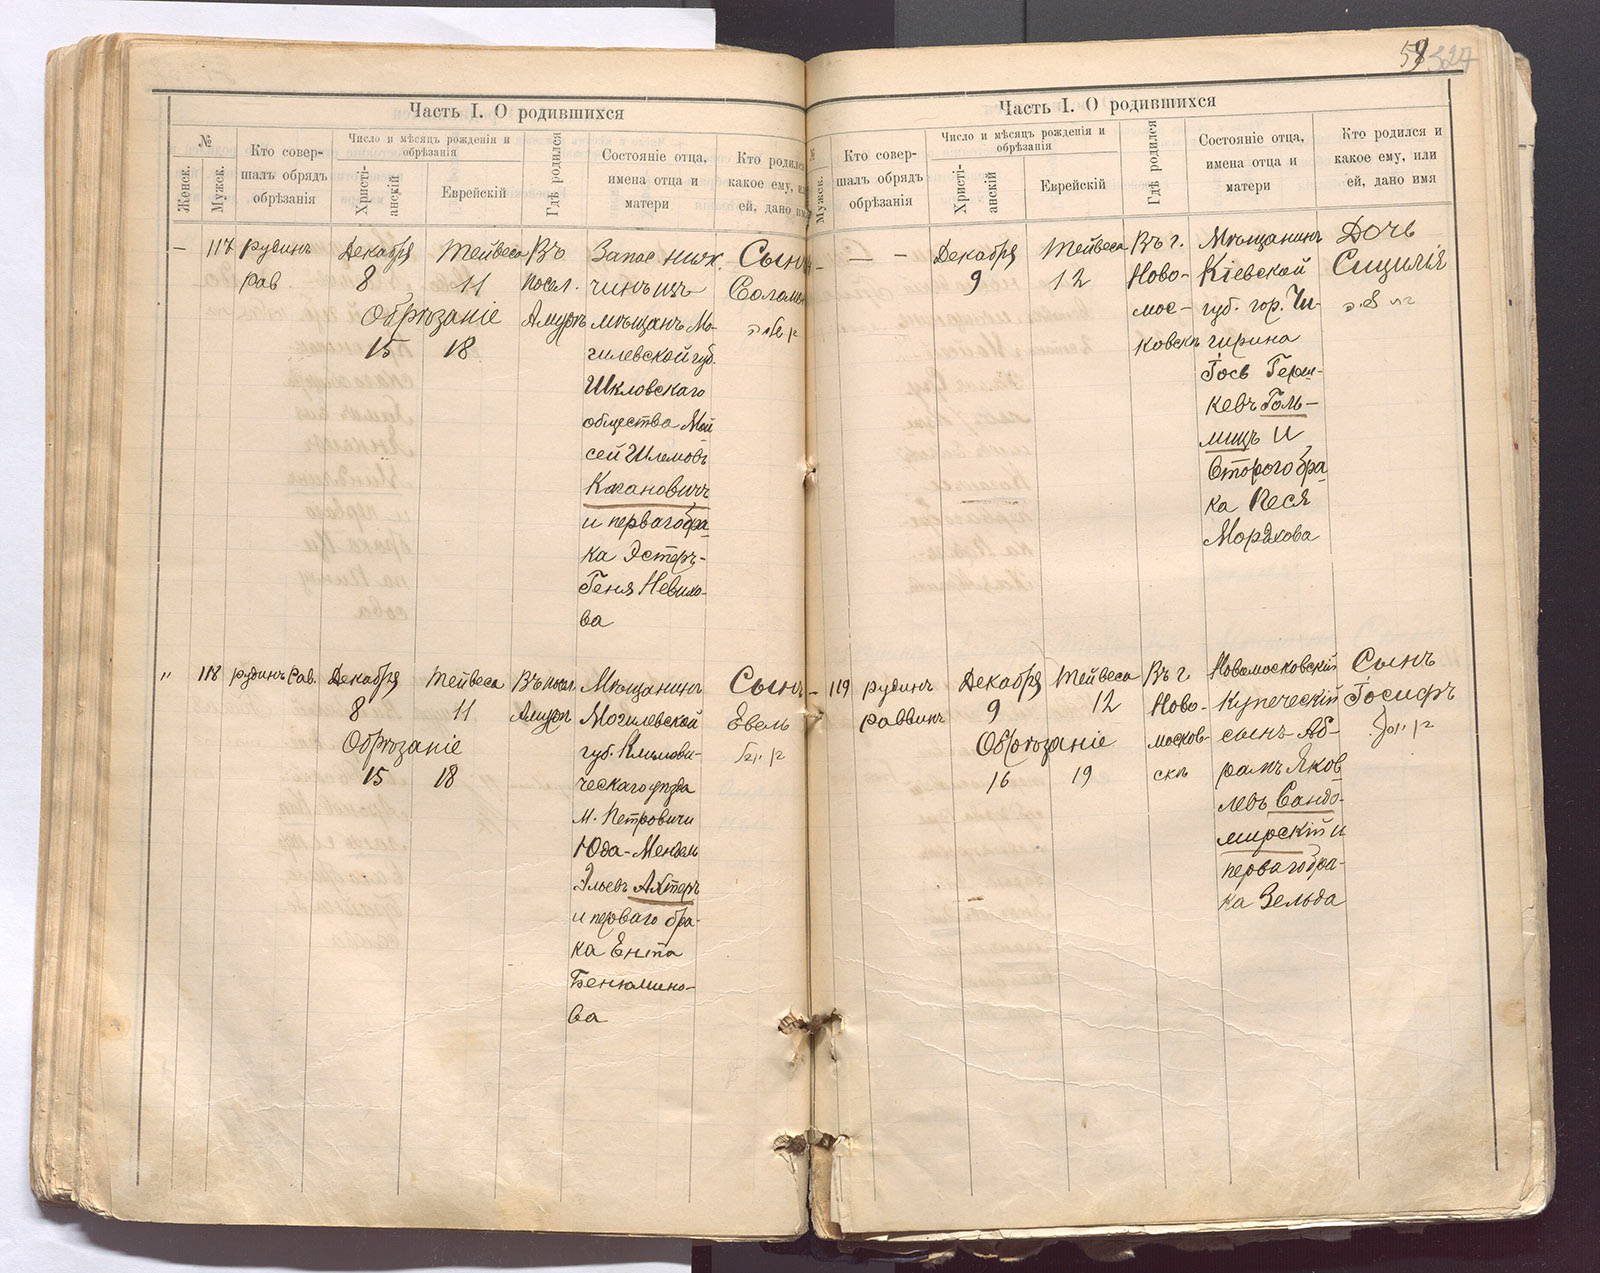 59 327
Часть I. О родившихся
№
Женск.
Мужск.
Кто совер-
шалъ обрядъ
обрѣзанія
Число и мѣсяцъ рожденія и
обрѣзанія
Христі-
анскій
Еврейскій
Гдѣ родился
Состояніе отца,
имена отца и
матери
Кто родился
какое ему, или
ей, дано имя
— 117
Рудинъ
Рав.
Декабря
8
Тейвеса
11
Обрѣзаніе
15 18
Въ
посел.
Амуръ
Запас. ниж.
чинъ изъ
мѣщанъ Мо-
гилевской губ.
Шкловскаго
общества Мой
сей Шлемовъ
Кагановичъ
и перваго бра-
ка Эстеръ-
Геня Невихо-
ва
Сынъ
Соломо
" 118
Рудинъ Рав.
Декабря
8
Тейвеса
11
Обрѣзаніе
15 18
Въ посел.
Амуръ
Мѣщанинъ
Могилевской
губ. Климови-
ческаго уѣзда
м. Петровичи
Юда-Мендель
Эльевъ Ахтеръ
и перваго бра-
ка Ента
Бенюмино-
ва
Сынъ
Евель
Часть I. О родившихся
№
Мужск.
Кто совер-
шалъ обрядъ
обрѣзанія
Число и мѣсяцъ рожденія и
обрѣзанія
Христі-
анскій
Еврейскій
Гдѣ родился
Состояніе отца,
имена отца и
матери
Кто родился и
какое ему, или
ей, дано имя
— — —
Декабря
9
Тейвеса
12
Въ г.
Ново-
мос-
ковскъ
Мѣщанинъ
Кіевской
губ. гор. Чи-
гирина
Іось Герш-
кевъ Голь-
мицъ и
второго бра-
ка Песя
Мордкова
Дочь
Сицилія
— 119
Рудинъ
Раввинъ
Декабря
9
Тейвеса
12
Обрѣзаніе
16 19
Въ г.
Ново-
москов-
скъ
Новомосковскій
Купеческій
сынъ Аб-
рамъ Яков
левъ Сандо-
мирскій и
перваго бра-
ка Зельда
Сынъ
Іосифъ